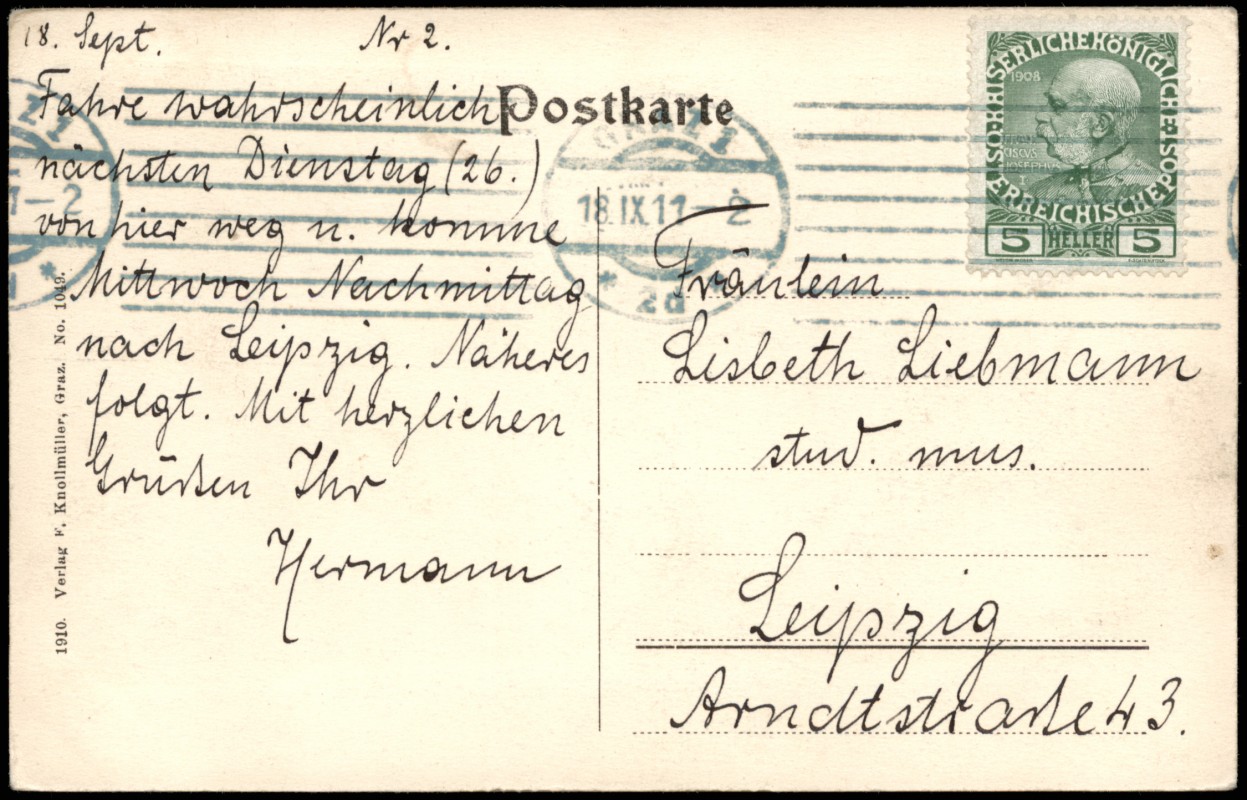 18. Sept. Nr 2.
Fahre wahrscheinlich
nächsten Dienstag (26.)
von hier weg u. komme
Mittwoch Nachmittag
nach Leipzig. Näheres
folgt. Mit herzlichen
Grüßen Ihr
Hermann
1910. Verlag F. Knollmüller, Graz. No. 1049.
Postkarte
GRAZ 1
18.IX.11-2
* 2d
KAISERLICHEKÖNIGLICHE ÖSTERREICHISCHE POST
1908
5 HELLER 5
Fräulein
Lisbeth Liebmann
stud. mus.
Leipzig
Arndtstraße 43.